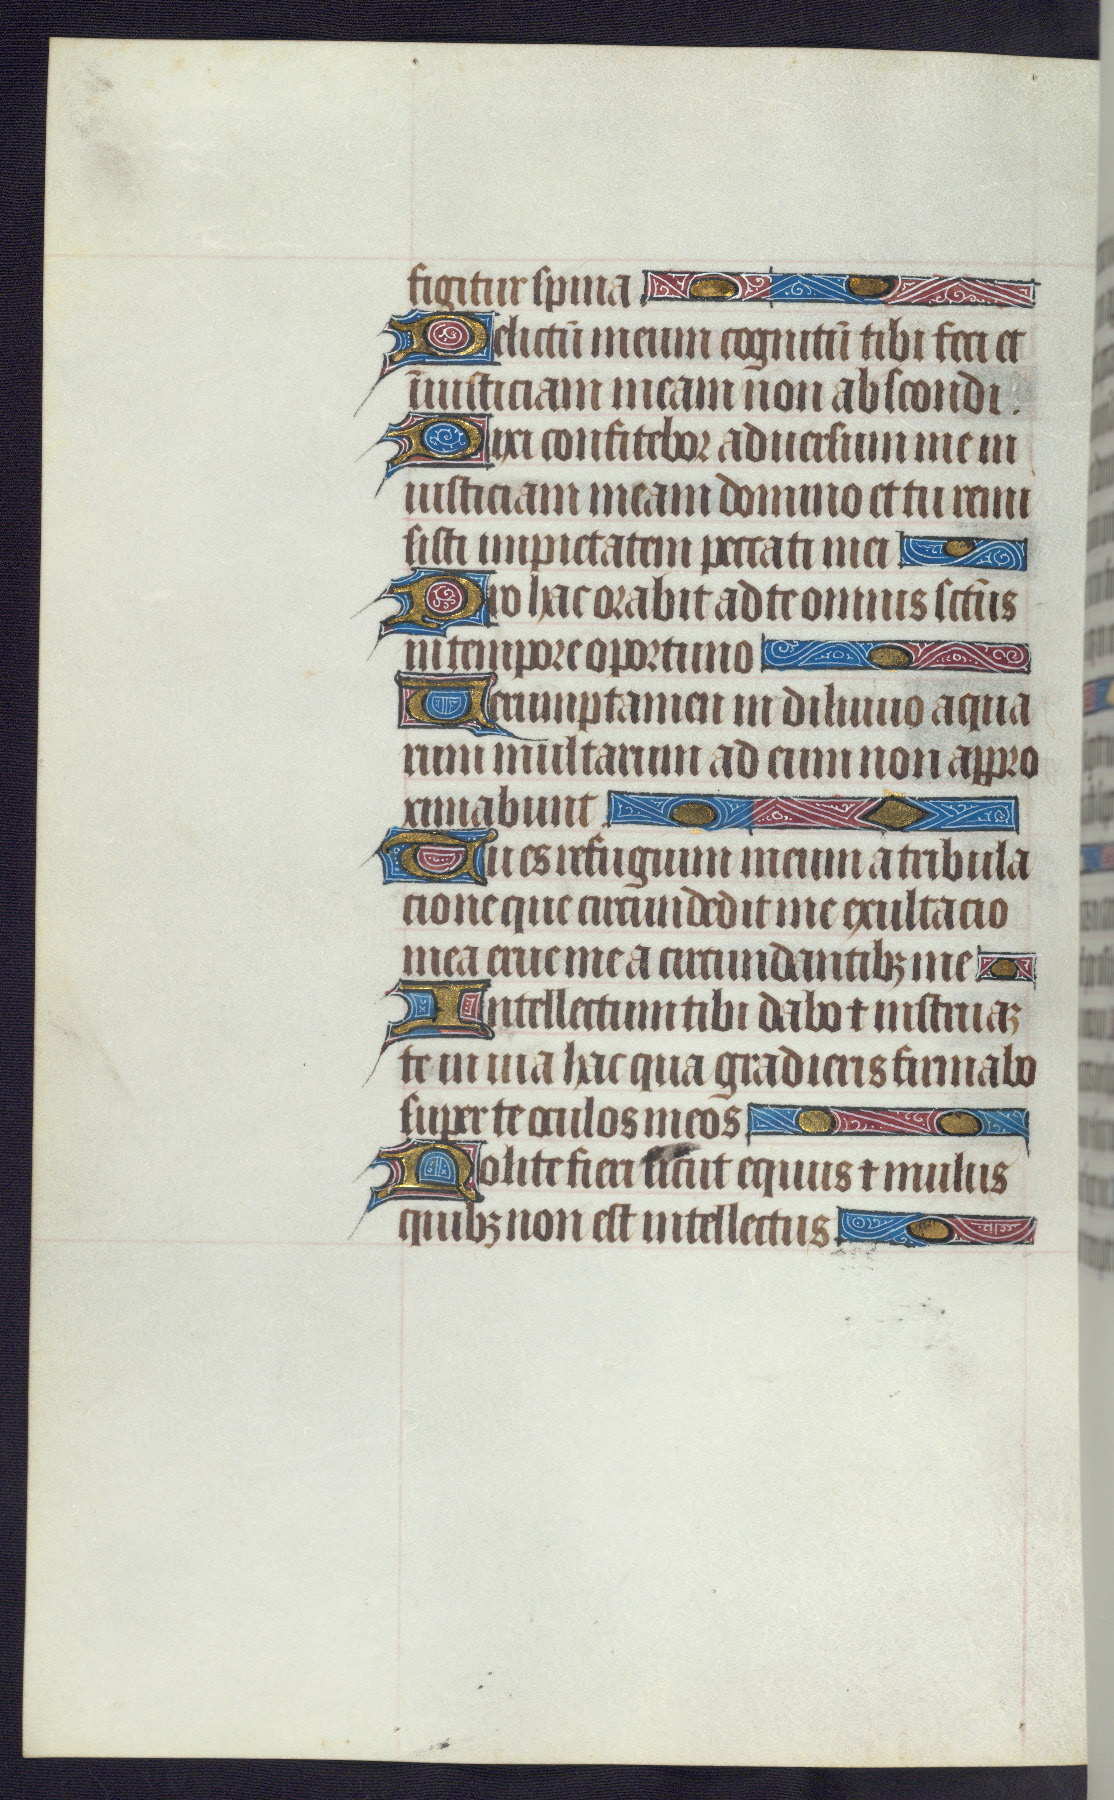 figitur spina
Delictū meum cognitū tibi feci et
īiusticiam meam non abscondi.
Dixi confitebor aduersum me in
iusticiam meam domino et tu remi
sisti impietatem peccati mei
Pro hac orabit ad te omnis sctūs
in tempore oportuno
Uerumptamen in diluuio aqua
rum multarum ad eum non appro
ximabunt
Tu es refugium meum a tribula
cione que circundedit me exultacio
mea erue me a circundantibꝫ me
Intellectum tibi dabo ⁊ instruaꝫ
te in uia hac qua gradieris firmabo
super te oculos meos
Nolite fieri sicut equus ⁊ mulus
quibꝫ non est intellectus